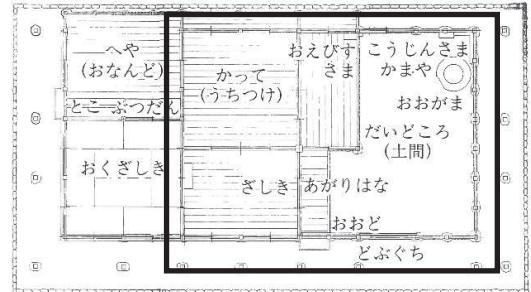 へや
(おなんど)
とこ ぶつだん
おくざしき
かって
(うちつけ)
ざしき
おえびす
さま
こうじんさま
かまや
おおがま
だいどころ
(土間)
あがりはな
おおど
どぶぐち